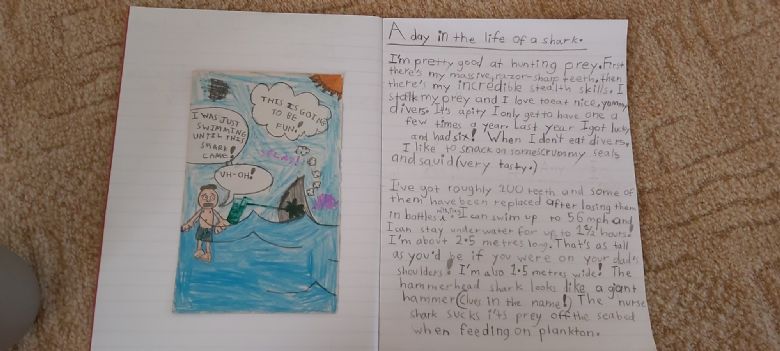 THIS IS GOING
TO BE
FUN!
I WAS JUST
SWIMMING
UNTIL THIS
SHARK
CAME!
UH-OH!
A day in the life of a shark.
I'm pretty good at hunting prey. First
there's my massive, razor-sharp teeth, then
there's my incredible stealth skills. I
stalk my prey and I love to eat nice, yummy
divers. It's a pity I only get to have one a
few times a year. Last year I got lucky
and had six! When I don't eat divers,
I like to snack on some scrummy seals
and squid (very tasty.)
I've got roughly 200 teeth and some of
them have been replaced after losing them
in battles. I can swim up to 56 mph and
I can stay underwater for up to 1½ hours.
I'm about 2.5 metres long. That's as tall
as you'd be if you were on your dad's
shoulders! I'm also 1.5 metres wide! The
hammerhead shark looks like a giant
hammer (clues in the name!) The nurse
shark sucks it's prey off the seabed
when feeding on plankton.